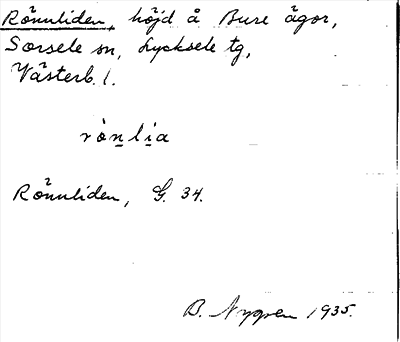 Rönnliden, höjd å Bure ägor,
Sorsele sn, Lycksele tg,
Västerb. l.
rònlia
Rönnliden, G. 34.
B. Nygren 1935.